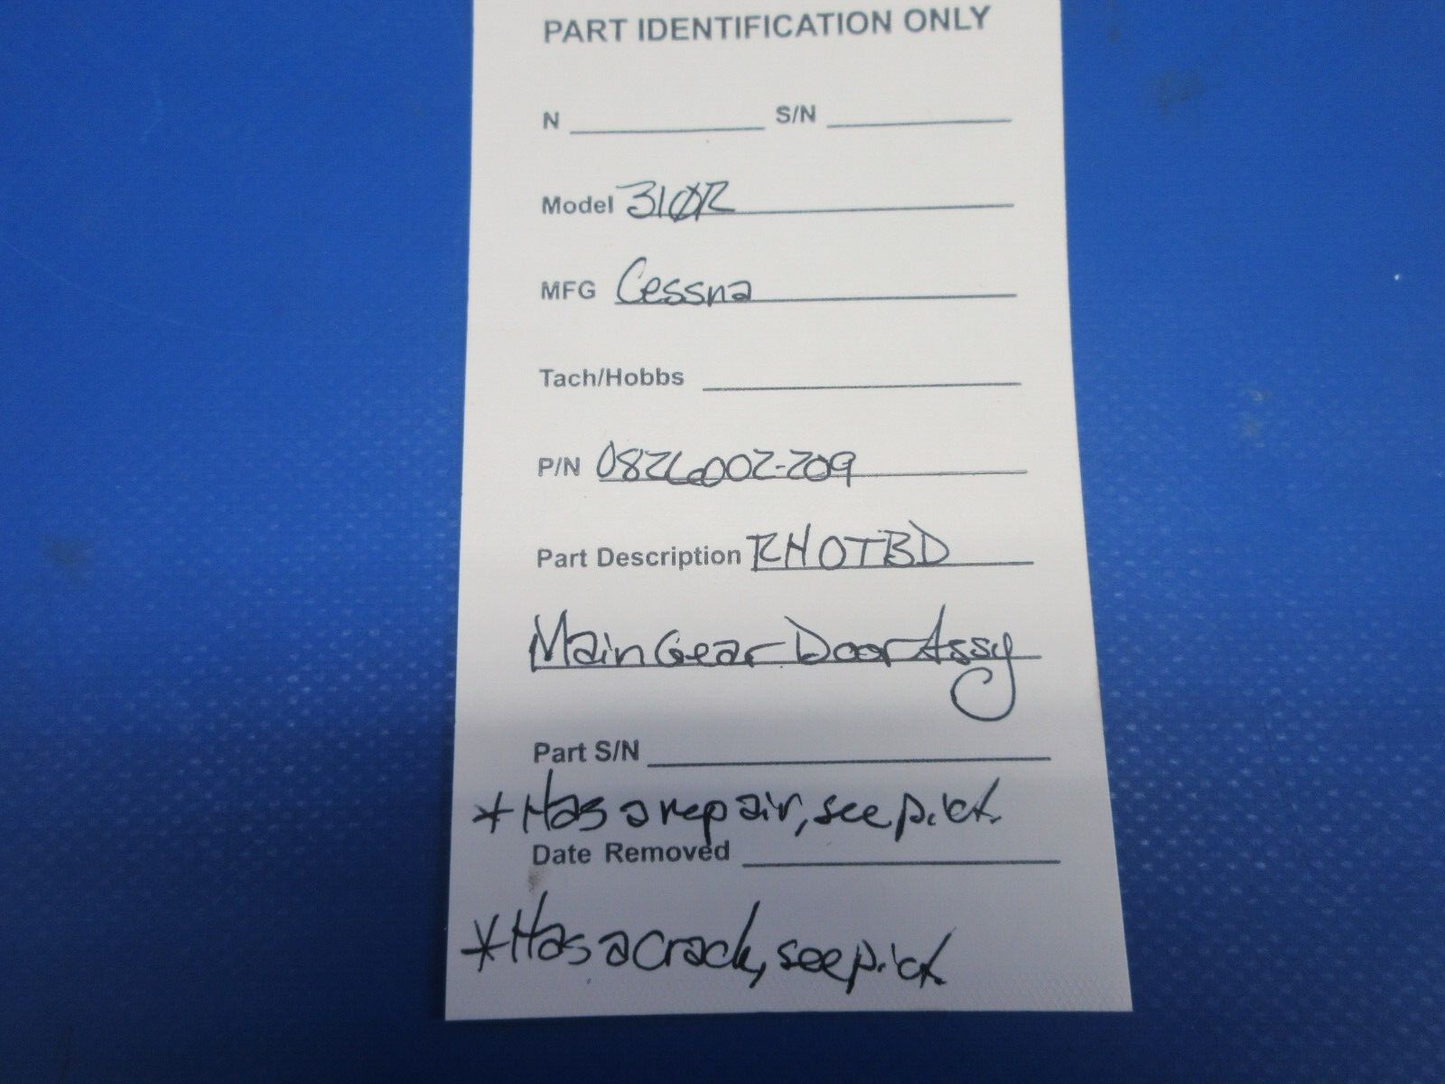 PART IDENTIFICATION ONLY
N S/N
Model 310R
MFG Cessna
Tach/Hobbs
P/N 0826002-209
Part Description RH OTBD
Main Gear Door Assy
Part S/N
*Has a repair, see pict.
Date Removed
*Has a crack, see pict